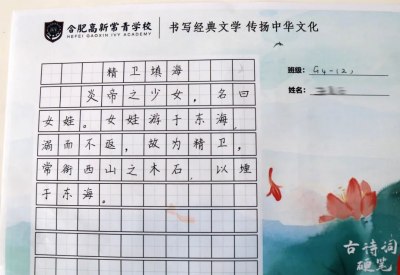 合肥高新常青学校
HEFEI GAOXIN IVY ACADEMY
书写经典文学 传扬中华文化
班级：G4-(2)
姓名：
精卫填海
炎帝之少女，名曰
女娃。女娃游于东海，
溺而不返，故为精卫，
常衔西山之木石，以堙
于东海。
古诗词
硬笔